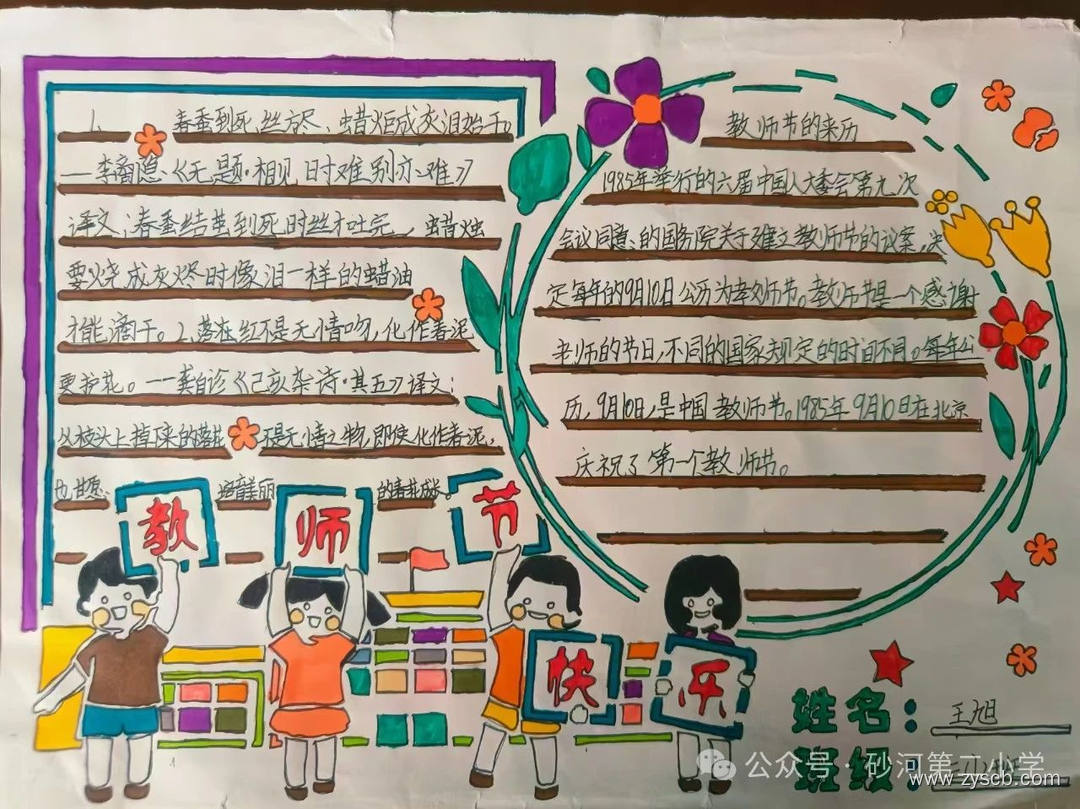 1、 春蚕到死丝方尽、蜡炬成灰泪始干。
——李商隐《无题·相见时难别亦难》
译文:春蚕结茧到死时丝才吐完,蜡烛
要烧成灰烬时像泪一样的蜡油
才能滴干。2、落在红不是无情吻,化作春泥
要护花。——龚自诊《己亥杂诗·其五》译文:
从枝头上掉下来的落花不是无情之物,即使化作春泥,
也甘愿培育美丽的春花成长。
教师节的来历
1985年举行的六届中国人大委会第九次
会议同意的国务院关于建立教师节的议案,决
定每年的9月10日公历为教师节。教师节是一个感谢
老师的节日,不同的国家规定的时间不同。每年公
历,9月10日,是中国教师节。1985年9月10日在北京
庆祝了第一个教师节。
教师节
快乐
姓名:王旭
班级:
公众号·砂河第二小学
www.zyscb.com